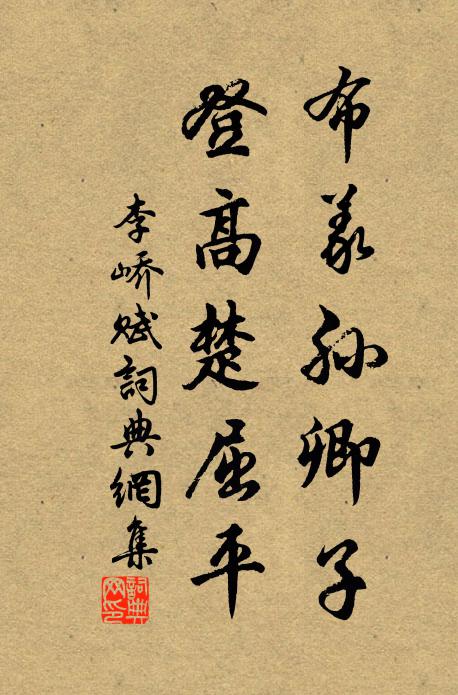 布義孫卿子
登高楚屈平
李嶠賦詞典網集
詞典
网印